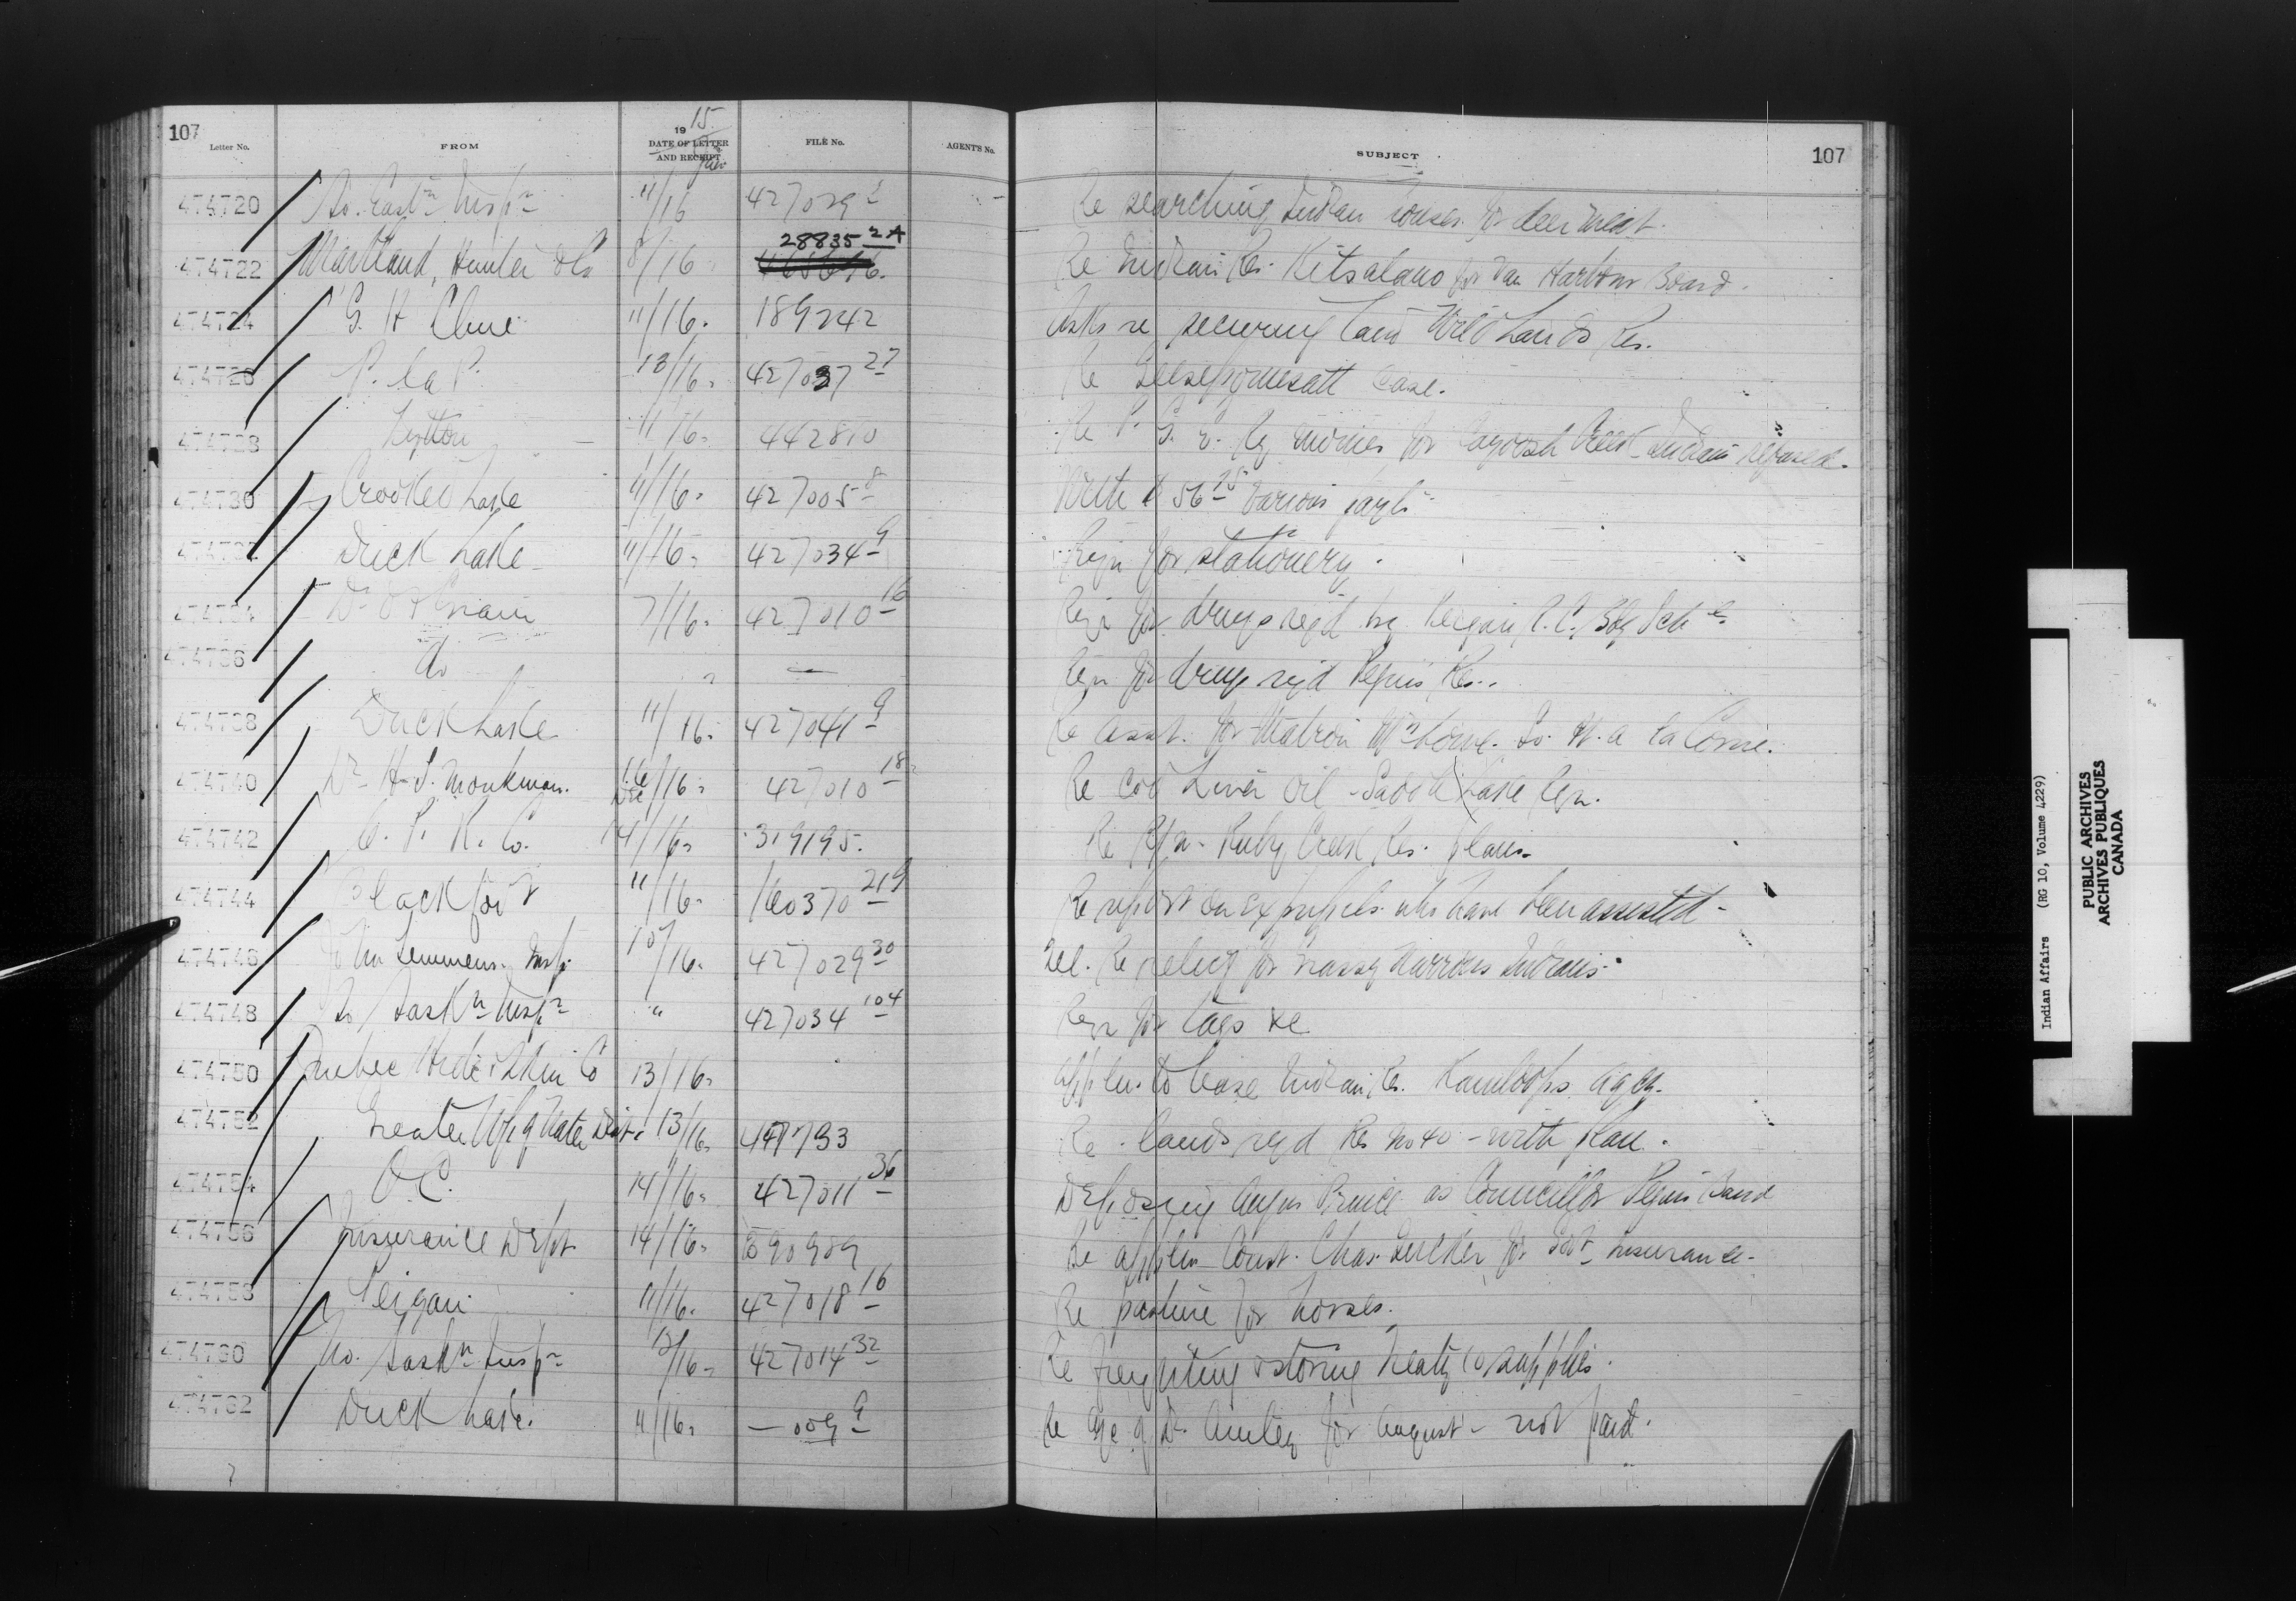 107
19 15
Letter No. FROM DATE OF LETTER AND RECEIPT Nov FILE No. AGENT'S No. SUBJECT 107
474720 So. East n Insp n 11/16 427029 2 Re searching Indian houses for deer meat.
28835 2A
474722 Maitland, Hunter & Co 8/16 Re Indian Res. Kitsalano for Van Harbour Board.
474724 G. H Clure 11/16. 189242 Asks re securing land Wild Lands Res.
474726 P. la P. 13/16. 427037 27 Re case.
474728 Lytton 11/16. 442810 Re P. G. E. Ry monies for Cayoosh Creek Indians refused.
474730 Crooked Lake 11/16. 427005 8 With $ 56 25 various payts
Duck Lake 11/16. 427034 9 Reqn for stationery.
474734 7/16. 427010 16 Reqn for drugs reqd by R.C. Bdg Sch
474736 do " — Reqn for drugs reqd Peguis Res.
474738 Duck Lake 11/16. 427041 9 Re asst. for Matron Ft. a la Corne.
474740 Dr H. S. Monkman. 16/16. 427010 18 Re Cod Liver Oil - Saddle Lake Agn.
474742 C. P. R. Co. 14/16. 319195. Re R/W - Ruby Creek Res. plans.
474744 Blackfoot 11/16. 160370 21 9 Re report on ex pupils who have been assisted -
474746 John Semmens. Insp. 10/16. 427029 30 Tel. Re relief for Grassy Narrows Indians.
474748 So Sask n Insp n " 427034 104 Reqn for tags &c
474750 Quebec Co 13/16. appln. to lease Indian Res. Kamloops Agcy.
474752 Greater Wpg Water Dist. 13/16. Re lands reqd Res No 40 - with plan.
474754 O.C. 14/16. 427011 36 Deposing Angus Prince as Councillor Peguis Band
474756 Insurance Dept 14/16. 390909 Re appln Const. Chas. for Govt insurance.
474758 Peigan 11/16. 427018 16 Re pasture for horses.
474760 No. Sask n Insp n 13/16. 427014 32 Re freighting & storing Treaty 10 supplies.
474762 Duck Lake. 11/16. — 009 9 Re a/c of Dr. for August - not paid.
Indian Affairs (RG 10, Volume 4229)
PUBLIC ARCHIVES
ARCHIVES PUBLIQUES
CANADA